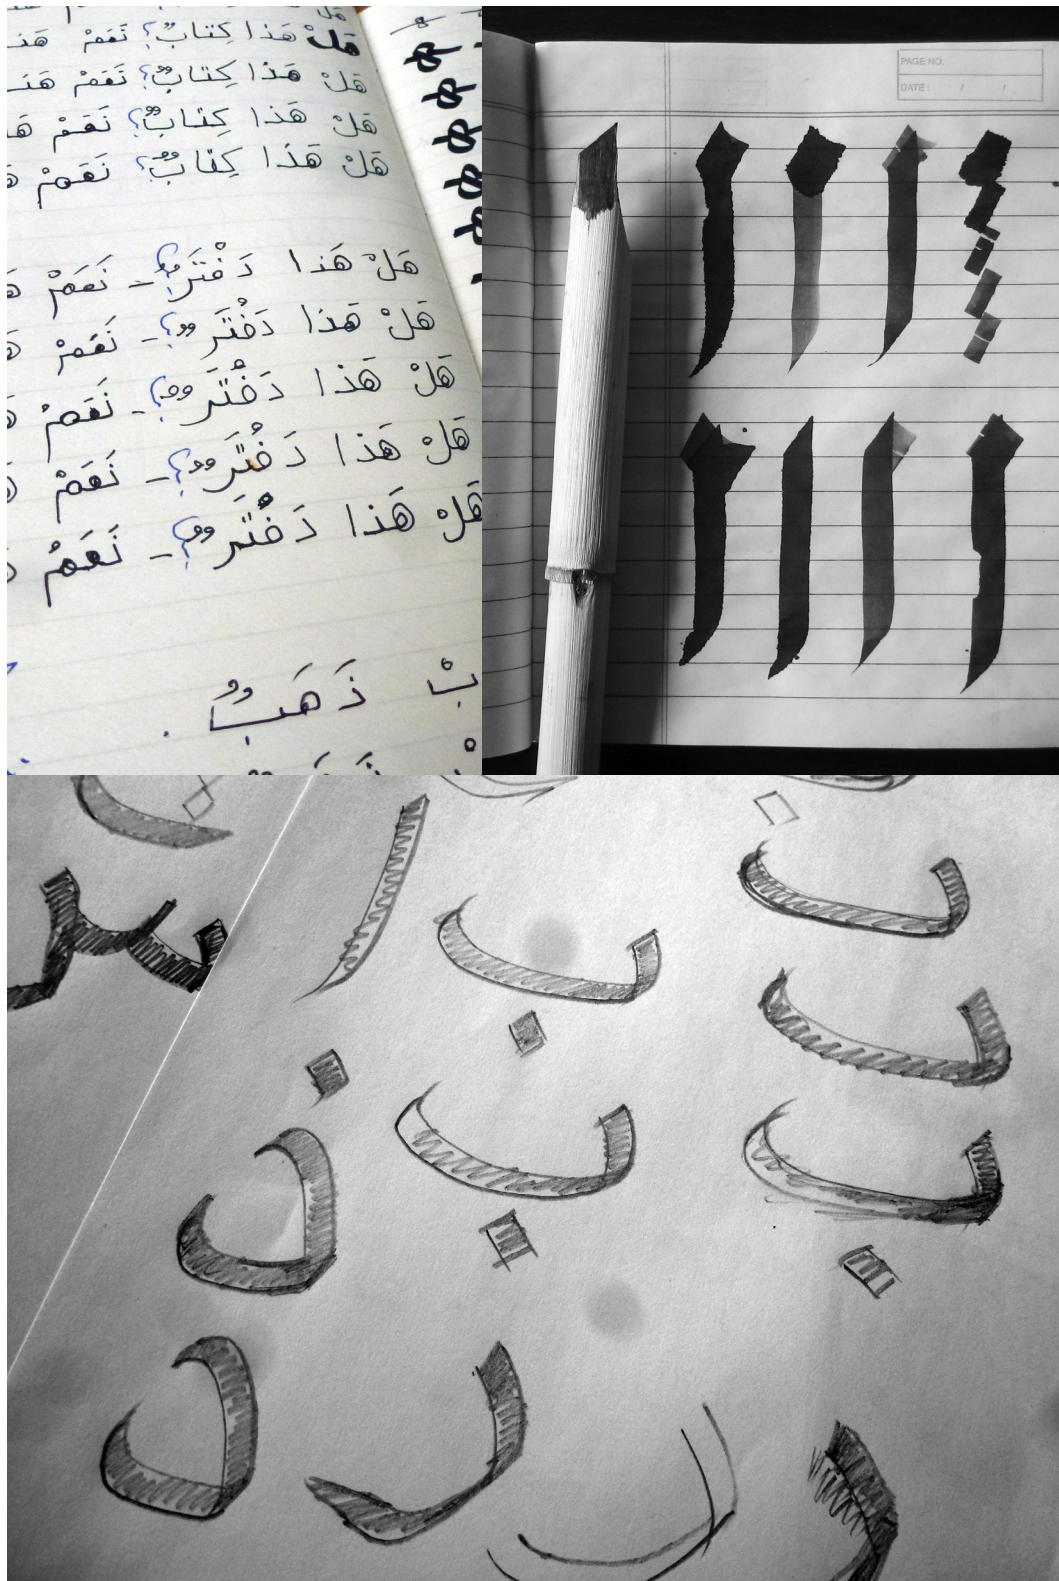 هَلْ هَذا كِتابٌ؟ نَعَمْ هَذ
هَلْ هَذا كِتابٌ؟ نَعَمْ هَذ
هَلْ هَذا كِتابٌ؟ نَعَمْ هَ
هَلْ هَذا كِتابٌ؟ نَعَمْ
هَلْ هَذا دَفْتَرٌ؟ - نَعَمْ
هَلْ هَذا دَفْتَرٌ؟ - نَعَمْ
هَلْ هَذا دَفْتَرٌ؟ - نَعَمْ
هَلْ هَذا دَفْتَرٌ؟ - نَعَمْ
هَلْ هَذا دَفْتَرٌ؟ - نَعَمْ
بْ ذَهَبٌ .
PAGE NO.
DATE: / /
ا ا ا ا
ا ا ا ا
ب ب ا
ب ب ذ
ر د